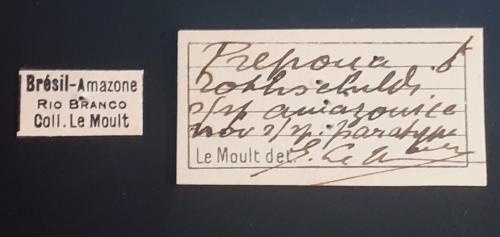 Brésil-Amazone
RIO BRANCO
Coll. Le Moult
Prepona
rothschildi
s/sp amazonica
nov s/sp. paratype
Le Moult det. E. Le Moult